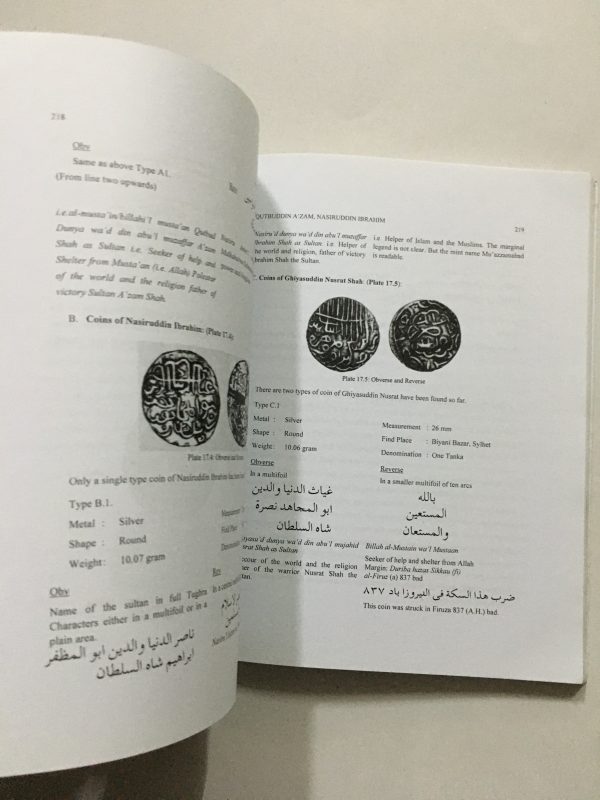 218
Obv
Same as above Type A1.
(From line two upwards)
i.e.al-musta'in/billahi'l musta'an Qutbud
Dunya wa'd din abu'l muzaffar A'zam
Shah as Sultan i.e. Seeker of help and
Shelter from Musta'an (i.e. Allah) Polestar
of the world and the religion father of
victory Sultan A'zam Shah.
B. Coins of Nasiruddin Ibrahim: (Plate 17.4)
Plate 17.4: Obverse and
Only a single type coin of Nasiruddin Ibrahim
Type B.1.
Metal : Silver
Shape : Round
Weight : 10.07 gram
Obv
Name of the sultan in full Tughra
Characters either in a multifoil or in a
plain area.
ناصر الدنيا والدين ابو المظفر
ابراهيم شاه السلطان
Rev
QUTBUDDIN A'ZAM, NASIRUDDIN IBRAHIM
219
Nasiru'd dunya wa'd din abu'l muzaffar
Ibrahim Shah as Sultan. i.e. Helper of
he world and religion, father of victory
brahim Shah the Sultan.
i.e. Helper of Islam and the Muslims. The marginal
legend is not clear. But the mint name Mu'azzamabad
is readable.
Coins of Ghiyasuddin Nusrat Shah: (Plate 17.5):
Plate 17.5: Obverse and Reverse
There are two types of coin of Ghiyasuddin Nusrat have been found so far.
Type C.1
Metal : Silver
Shape : Round
Weight : 10.06 gram
Measurement : 26 mm
Find Place : Biyani Bazar, Sylhet
Denomination : One Tanka
Obverse
In a multifoil
غياث الدنيا والدين
ابو المجاهد نصرة
شاه السلطان
yasu'd dunya wa'd din abu'l mujahid
srat Shah as Sultan
ccour of the world and the religion
er of the warrior Nusrat Shah the
tan.
Reverse
In a smaller multifoil of ten arcs
بالله
المستعين
والمستعان
Billah al-Mustain wa'l Mustaan
Seeker of help and shelter from Allah
Margin: Duriba hazas Sikkau (fi)
al-Firuz (a) 837 bad
ضرب هذا السكة فى الفيروزا باد ٨٣٧
This coin was struck in Firuza 837 (A.H.) bad.